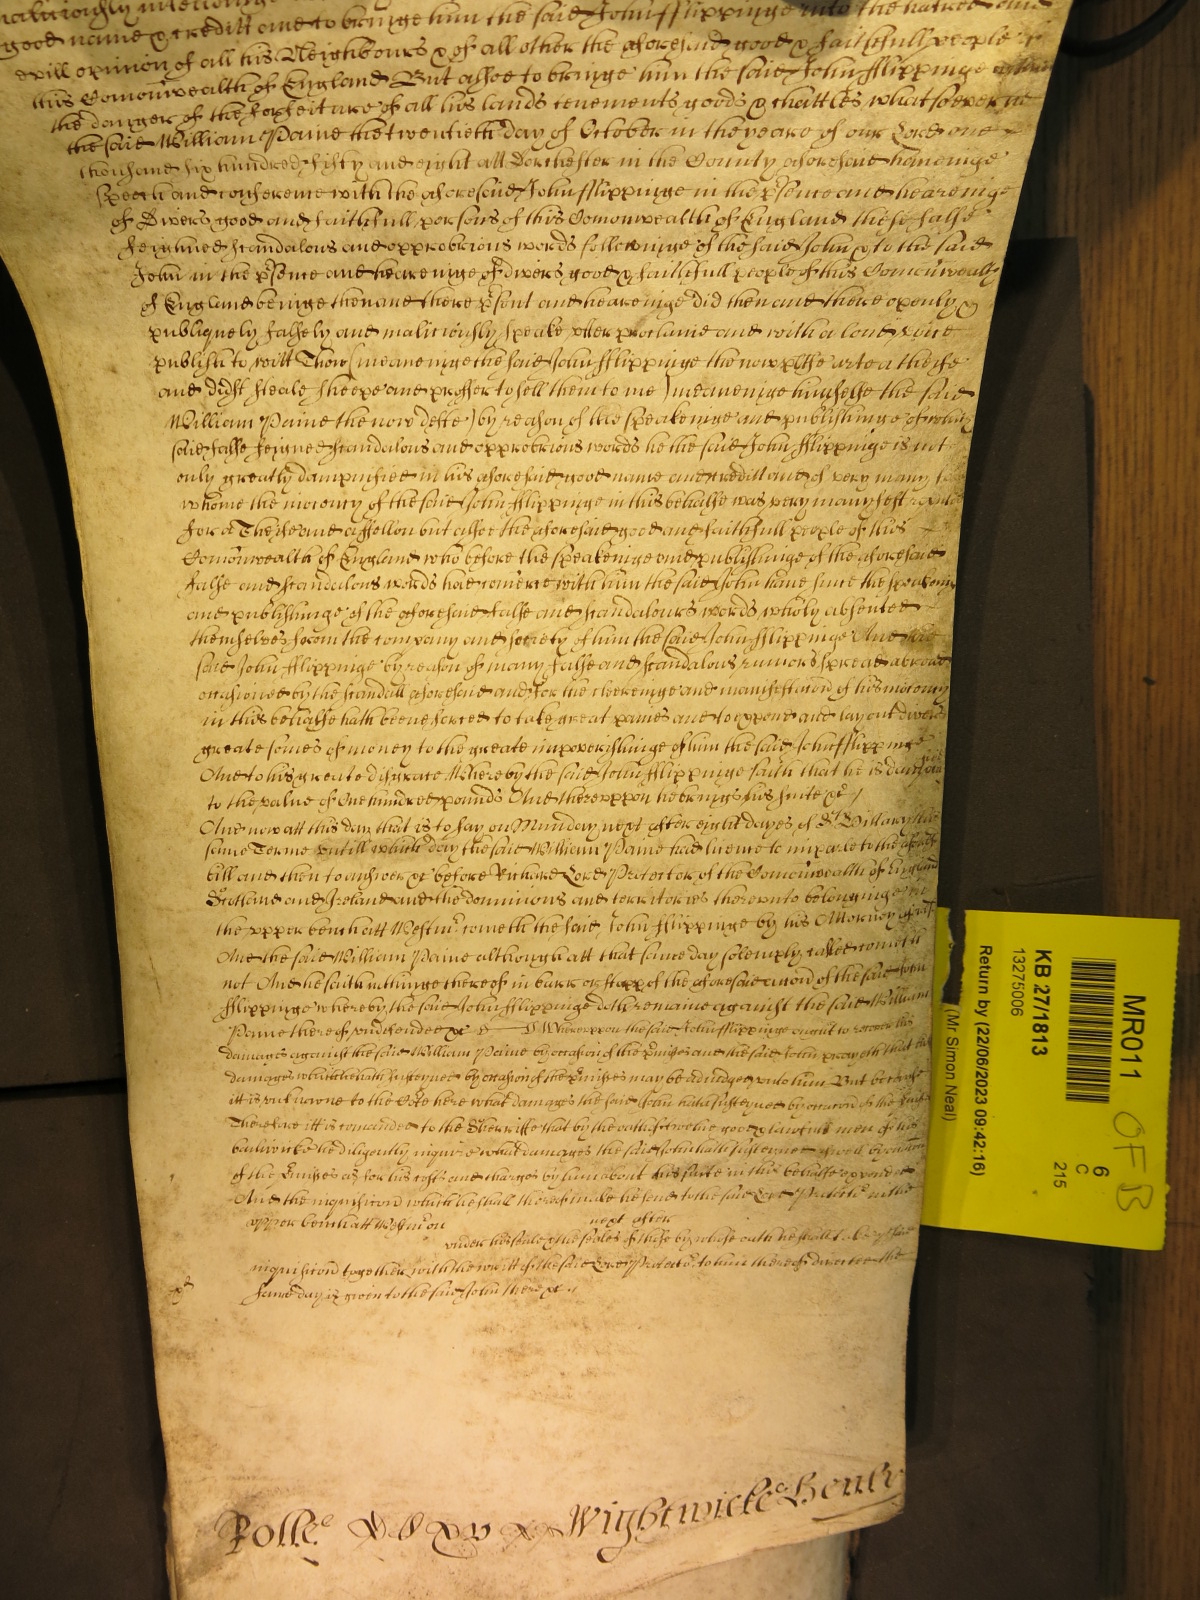 maliciously intendinge
good name & creditt and to bringe him the said John Fflippinge into the hatred and
evill opinion of all his Neighbours & of all other the aforesaid good & faithfull people of
this Comonwealth of England But alsoe to bringe him the said John Fflippinge
the danger of the forfeiture of all his lands tenements goods & chattles whatsoever he
the said William Paine the twentieth day of October in the yeare of our Lord one
thousand six hundred fifty and eight att Dorchester in the County aforesaid haveinge
speech and conference with the aforesaid John Fflippinge in the p'sence and heareinge
of divers good and faithfull persons of this Comonwealth of England these false
feighned scandalous and opprobrious words followinge of the said John & to the said
John in the p'sence and heareinge of divers good & faithfull people of this Comonwealth
of England beinge then and there p'sent and heareinge did then and there openly &
publiquely falsely and maliciously speake utter proclaime and with a loud voice
publish to witt Thou (meaneinge the said John Fflippinge the now pltffe) art a theife
and didst steale sheepe and proffer to sell them to me (meaneinge himselfe the said
William Paine the now defte) by reason of the speakeinge and publishinge of which
said false feigned scandalous and opprobrious words he the said John Fflippinge is not
only greatly dampnified in his aforesaid good name and creditt and of very many to
whome the inocency of the said John Fflippinge in this behalfe was very manyfest
for a Theife and a ffellon but alsoe the aforesaid good and faithfull people of this
Comonwealth of England who before the speakeinge and publishinge of the aforesaid
false and scandalous words had comerce with him the said John have since the speakeinge
and publishinge of the aforesaid false and scandalous words wholy absented
themselves from the company and society of him the said John Fflippinge And the
said John Fflippinge by reason of many false and scandalous rumors spread abroad
occasioned by the scandall aforesaid and for the cleereinge and manifestacion of his inocency
in this behalfe hath beene forced to take great paines and to expend and lay out divers
greate somes of money to the greate impoverishinge of him the said John Fflippinge
And to his greate disgrace Whereby the said John Fflippinge saith that he is
to the value of One hundred pounds And thereuppon he brings his suite &c
And now att this day that is to say on Munday next after eight dayes of St Hillary this
same Terme untill which day the said William Paine had licence to imparle to the aforesaid
bill and then to answer &c before Richard Lord Protector of the Comonwealth of England
Scotland and Ireland and the dominions and territories thereunto belonginge att
the upper bench att Westm' cometh the said John Fflippinge by his Attorney aforesaid
And the said William Paine although att that same day solemply called cometh
not And he saith nothinge thereof in barr or stopp of the aforesaid accion of the said John
Fflippinge whereby the said John Fflippinge doth remaine against the said William
Paine thereof undefended &c Whereuppon the said John Fflippinge ought to recover his
damages against the said William Paine by occasion of the p'misses and the said John prayeth that
damages which he hath susteyned by occasion of the p'misses may be adjudged unto him But because
itt is not knowne to the Court here what damages the said John hath susteyned by occasion of the p'misses
Therefore itt is comanded to the Sherriffe that by the oathes of twelve good & lawfull men of his
bailiwicke he diligently inquire what damages the said John hath susteyned aswell by occasion
of the p'misses as for his costs and charges by him about his suite in this behalfe expended
And the inquisicion which he shall thereof make he send to the said Lord Protector in the
upper bench att Westm' on next after
under his seale & the seales of those by whose oath he shall take that
inquisicion together with the writt of the said Lord Protector to him thereof directed the
same day is given to the said John there &c
Rolle Wightwicke Henly
MR011
OFB
6
C
215
KB 27/1813
13275006
Return by (22/06/2023 09:42:16)
(Mr Simon Neal)